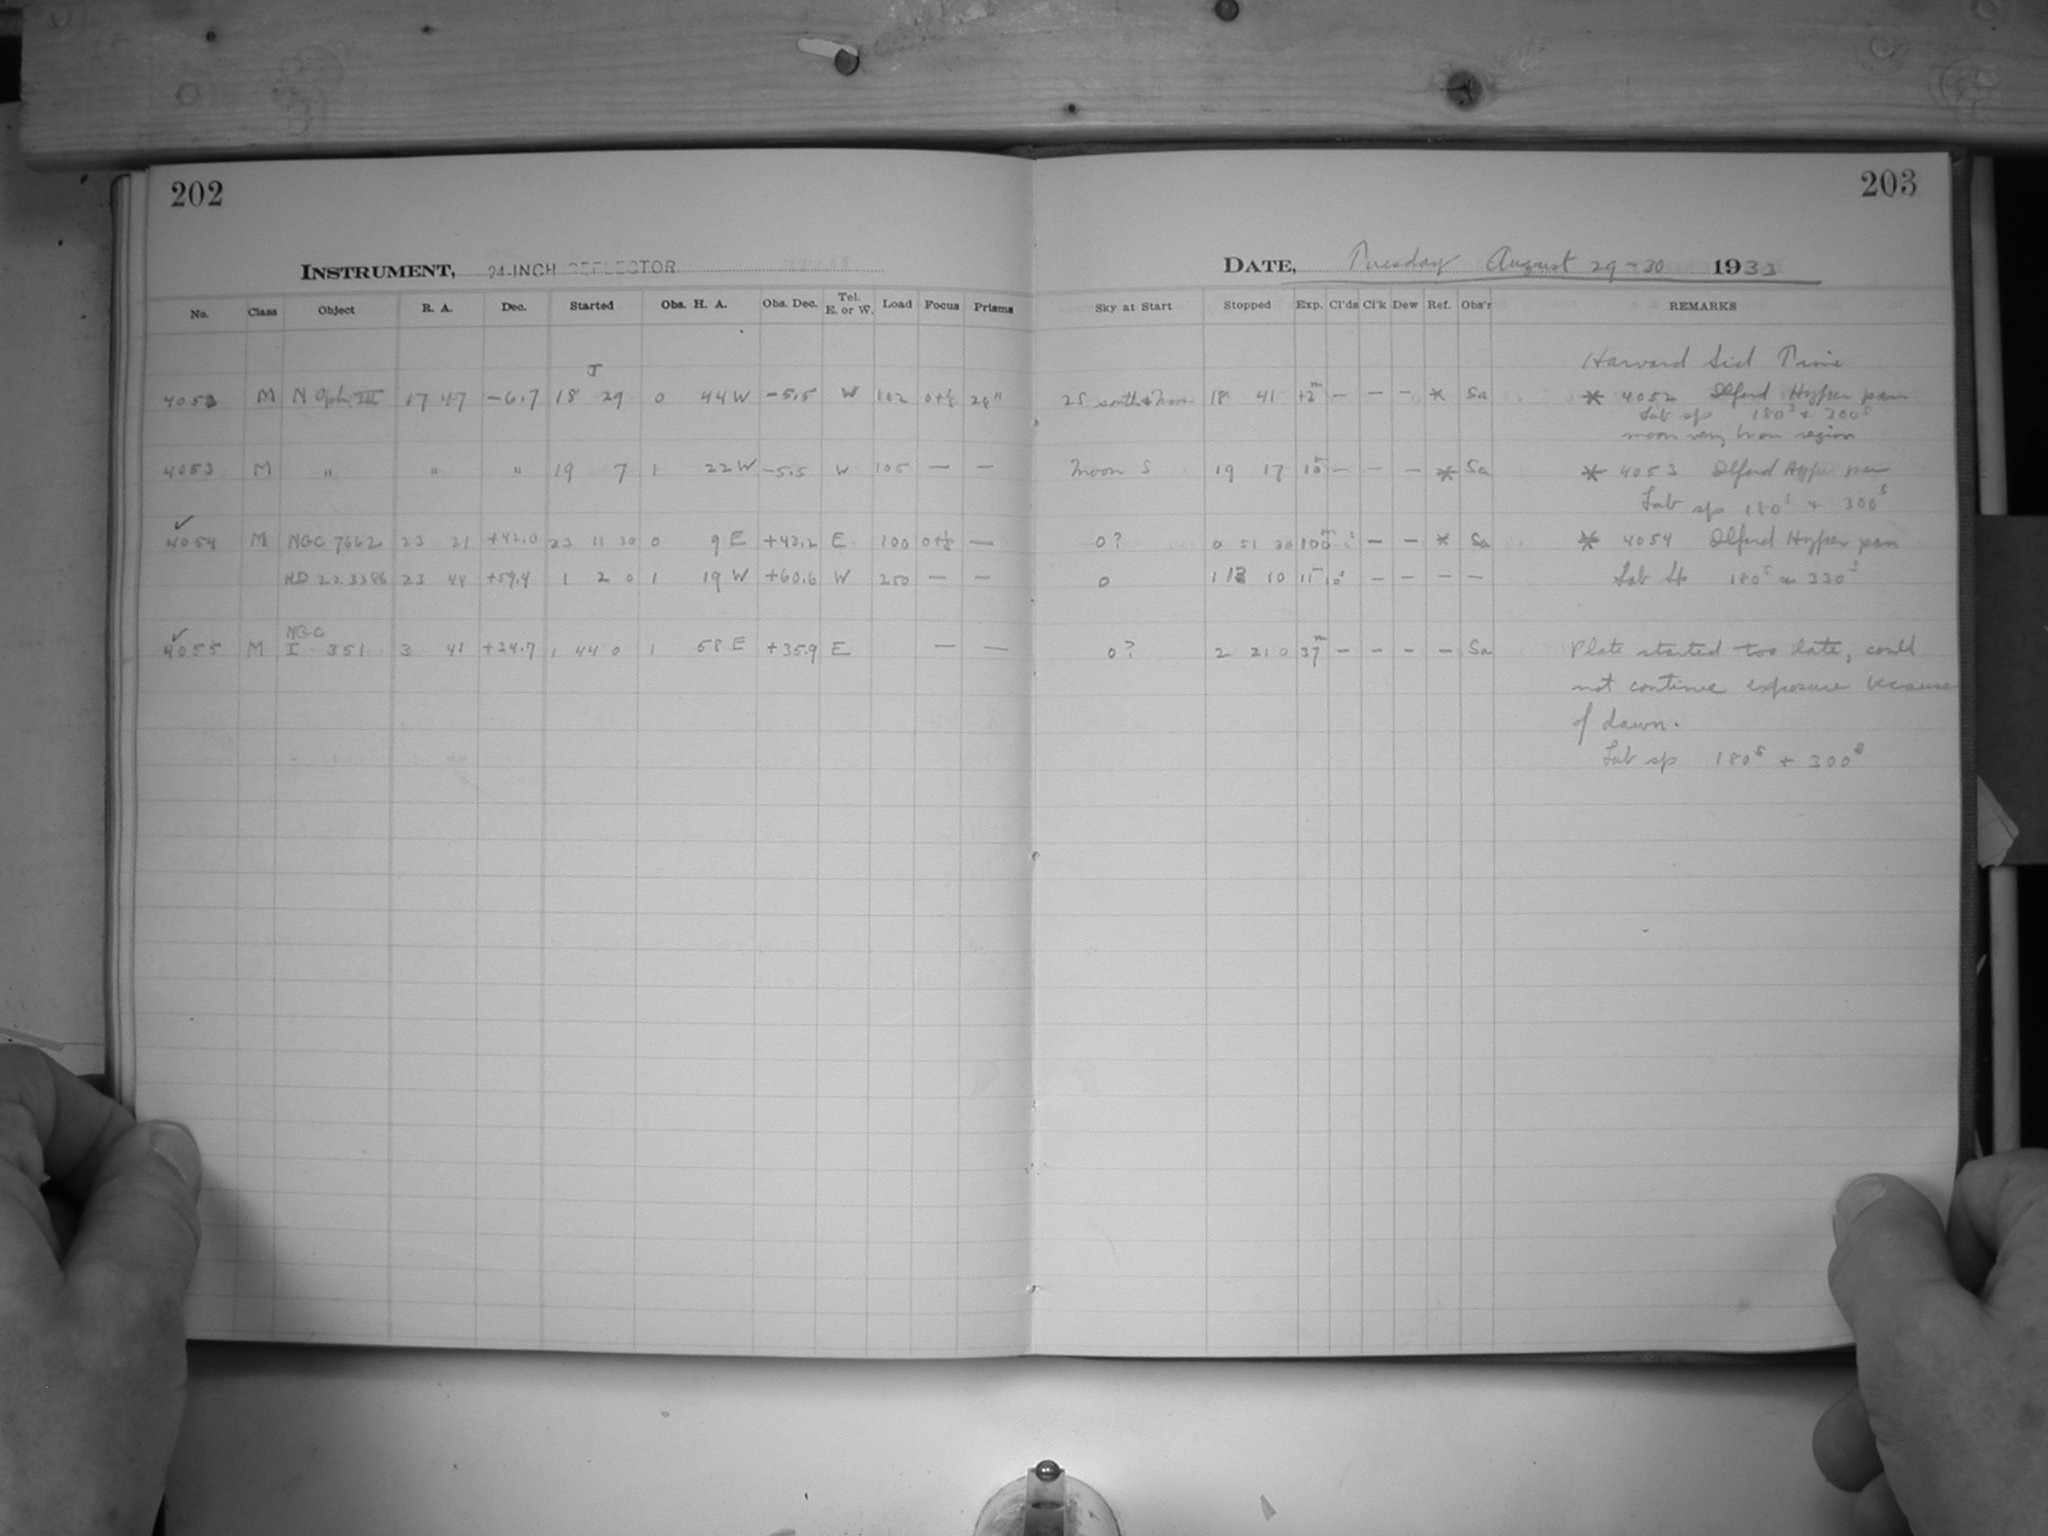 202
203
INSTRUMENT, 24-INCH REFLECTOR
DATE, Tuesday August 29-30 1933
No. Class Object R. A. Dec. Started Obs. H. A. Obs. Dec. Tel. E. or W. Load Focus Prisms Sky at Start Stopped Exp. Cl'ds Cl'k Dew Ref. Obs'r REMARKS
J
Harvard Sid Time
4052 M N Oph III 17 47 -6.7 18 29 0 44 W -5.5 W 102 0+⅛ 28" 2S south Moon 18 41 12m — — — * Sa * 4052 Ilford Hyper pan
Lab sp 180s + 300s
moon very from region
4053 M " " " 19 7 1 22 W -5.5 W 105 — — Moon S 19 17 10m — — — * Sa * 4053 Ilford Hyper pan
Lab sp 180s + 300s
✓
4054 M NGC 7662 23 21 +42.0 23 11 30 0 9 E +43.2 E 100 0+⅛ — 0? 0 51 30 100m — — * Sa * 4054 Ilford Hyper pan
HD 223386 23 44 +59.4 1 2 0 1 19 W +60.6 W 250 — — 0 1 13 10 11m 10s — — — — Lab Sp 180s 330s
✓ NGC
4055 M I 351 3 41 +34.7 1 44 0 1 58 E +35.9 E — — 0? 2 21 0 37m — — — — Sa Plate started too late, could
not continue exposure because
of dawn.
Lab sp 180s + 300s